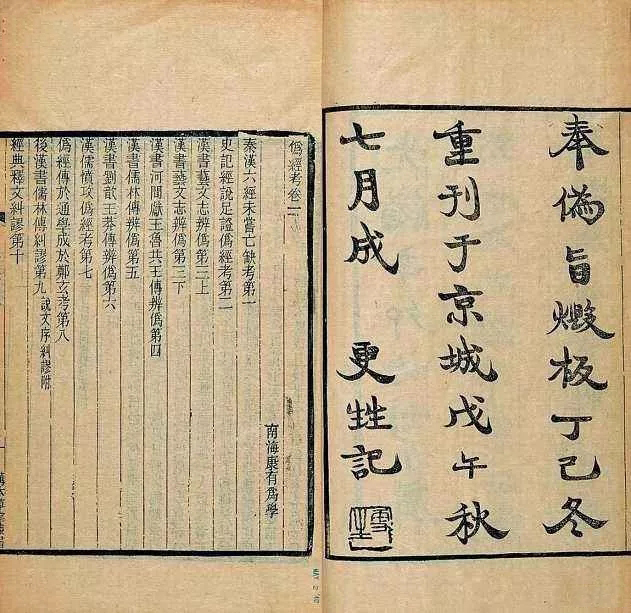 奉偽旨燬板丁巳冬
重刊于京城戊午秋
七月成 更甡記
僞經考卷
南海康有爲學
秦漢六經未嘗亡缺考第一
史記經說足證僞經考第二
漢書藝文志辨僞第三上
漢書藝文志辨僞第三下
漢書河間獻王魯共王傳辨僞第四
漢書儒林傳辨僞第五
漢書劉歆王莽傳辨僞第六
漢儒憤攻僞經考第七
僞經傳於通學成於鄭玄考第八
後漢書儒林傳糾謬第九 說文序糾謬附
經典釋文糾謬第十